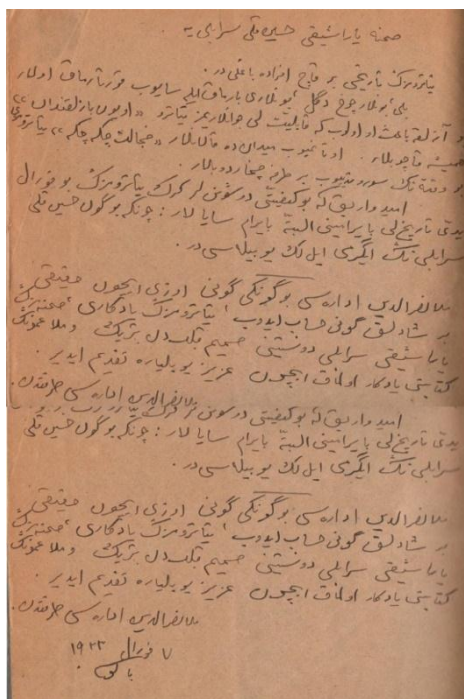 صحنه یاراشیقی حسین قلی سرابلی یه
تیاترومزک تاریخی بر قاچ افراده باغلی در.
بلی بونلار چوخ دگل بونلاری بارماق ایله سایوب قورتارماق اولار
و آزلقه باعث او اولوب که قابلیت لی جوانلاریمز تیاترو
همیشه قاچوبلار. اوتانمیوب میدان ده قالانلار «خجالت چکه چکه» تیاترونی
بو وقته تک سورو میوب بر طرفه چخاردوبلار.
امیدواریق که بو کیفیتی دوشونن لر گرک تیاترومزک بو فورال
یدی تاریخ لی بایرامینی البته بایرام سایالار: چونکه بو گون حسین قلی
سرابلی نک ایگرمی ایل لک یوبیلاسی در.
ملانصرالدین اداره سی بو گونکی گونی اوزی ایچون حقیقی
بر شادلیق گونی حساب ایدوب، تیاترومزک یادگاری، صحنه مزک
یاراشیقی سرابلی دوستینی صمیم قلبدن تبریک و ملا عمونک
کتابینی یادکار اولماق ایچون عزیز یوبلیاره تقدیم ایدیر.
ملانصرالدین اداره سی طرفندن.
امیدواریق که بو کیفیتی دوشونن لر گرک
یدی تاریخ لی بایرامینی البته بایرام سایالار: چونکه بو گون حسین قلی
سرابلی نک ایگرمی ایل لک یوبیلاسی در.
ملانصرالدین اداره سی بو گونکی گونی اوزی ایچون حقیقی
بر شادلیق گونی حساب ایدوب، تیاترومزک یادگاری، صحنه مزک
یاراشیقی سرابلی دوستینی صمیم قلبدن تبریک و ملا عمونک
کتابینی یادکار اولماق ایچون عزیز یوبلیاره تقدیم ایدیر.
ملانصرالدین اداره سی طرفندن.
۷ فورال ۱۹۲۳
باکو